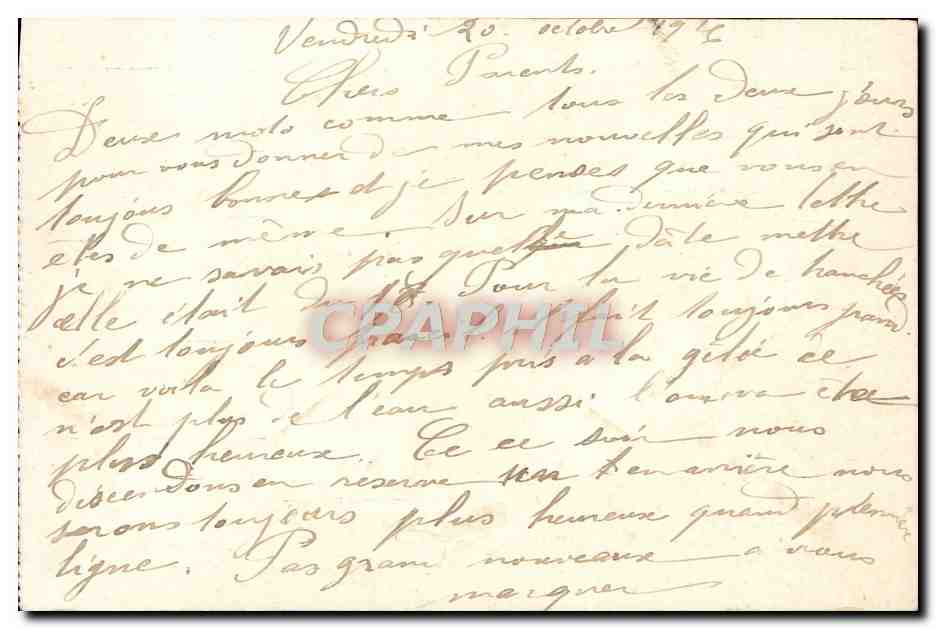 Vendredi 20 octobre 1916
Chers Parents.
Deux mots comme tous les deux jours
pour vous donner de mes nouvelles qui sont
toujous bonnes et je penses que vous en
êtes de même. Sur ma dernière lettre
je ne savais pas quelle dâte mettre
elle était du 18 Pour la vie de tranchées
c'est toujours pareil toujours
car voila le temps pris a la gelée ce
n'est plus de l'eau aussi l'on va être
plus heureux. Ce ce soir nous
descendons en réserve en arrière nous
serons toujours plus heureux quand première
ligne. Pas grand nouveaux a vous
marquer
CPAPHIL